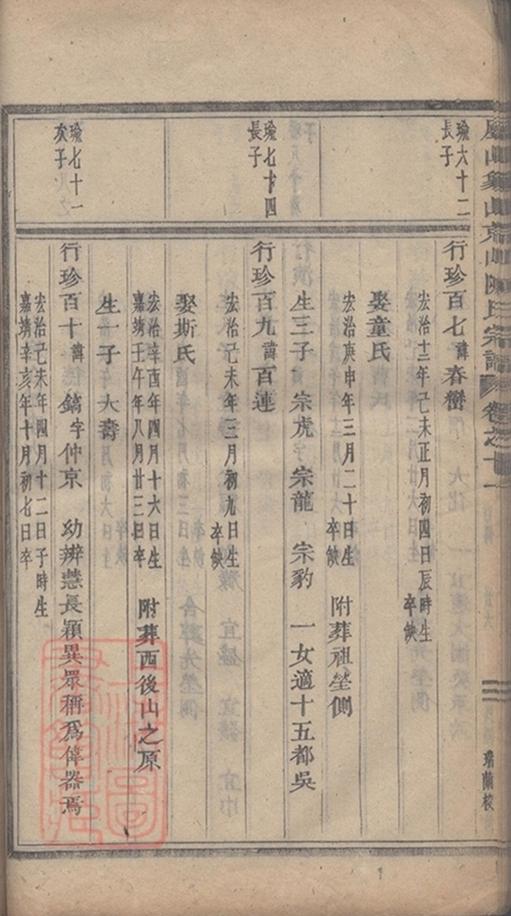 山象山東山陳氏宗譜 卷之十一
瑜六十二
長子
行珍百七 諱春巒
宏治十二年己未正月初四日辰時生
卒缺
娶童氏
宏治庚申年三月二十日生
卒缺
附葬祖塋側
生三子 宗虎 宗龍 宗豹 一女適十五都吳
瑜七十四
長子
行珍百九 諱百連
宏治己未年三月初九日生
卒缺
娶斯氏
宏治辛酉年四月十六日生
嘉靖壬午年八月廿三日卒
附葬西後山之原
生一子 大壽
瑜七十一
次子
行珍百十 諱鎬 字仲京 幼辨慧長穎異眾稱為偉器焉
宏治己未年四月十二日子時生
嘉靖辛亥年十月初七日卒
瑞蘭校